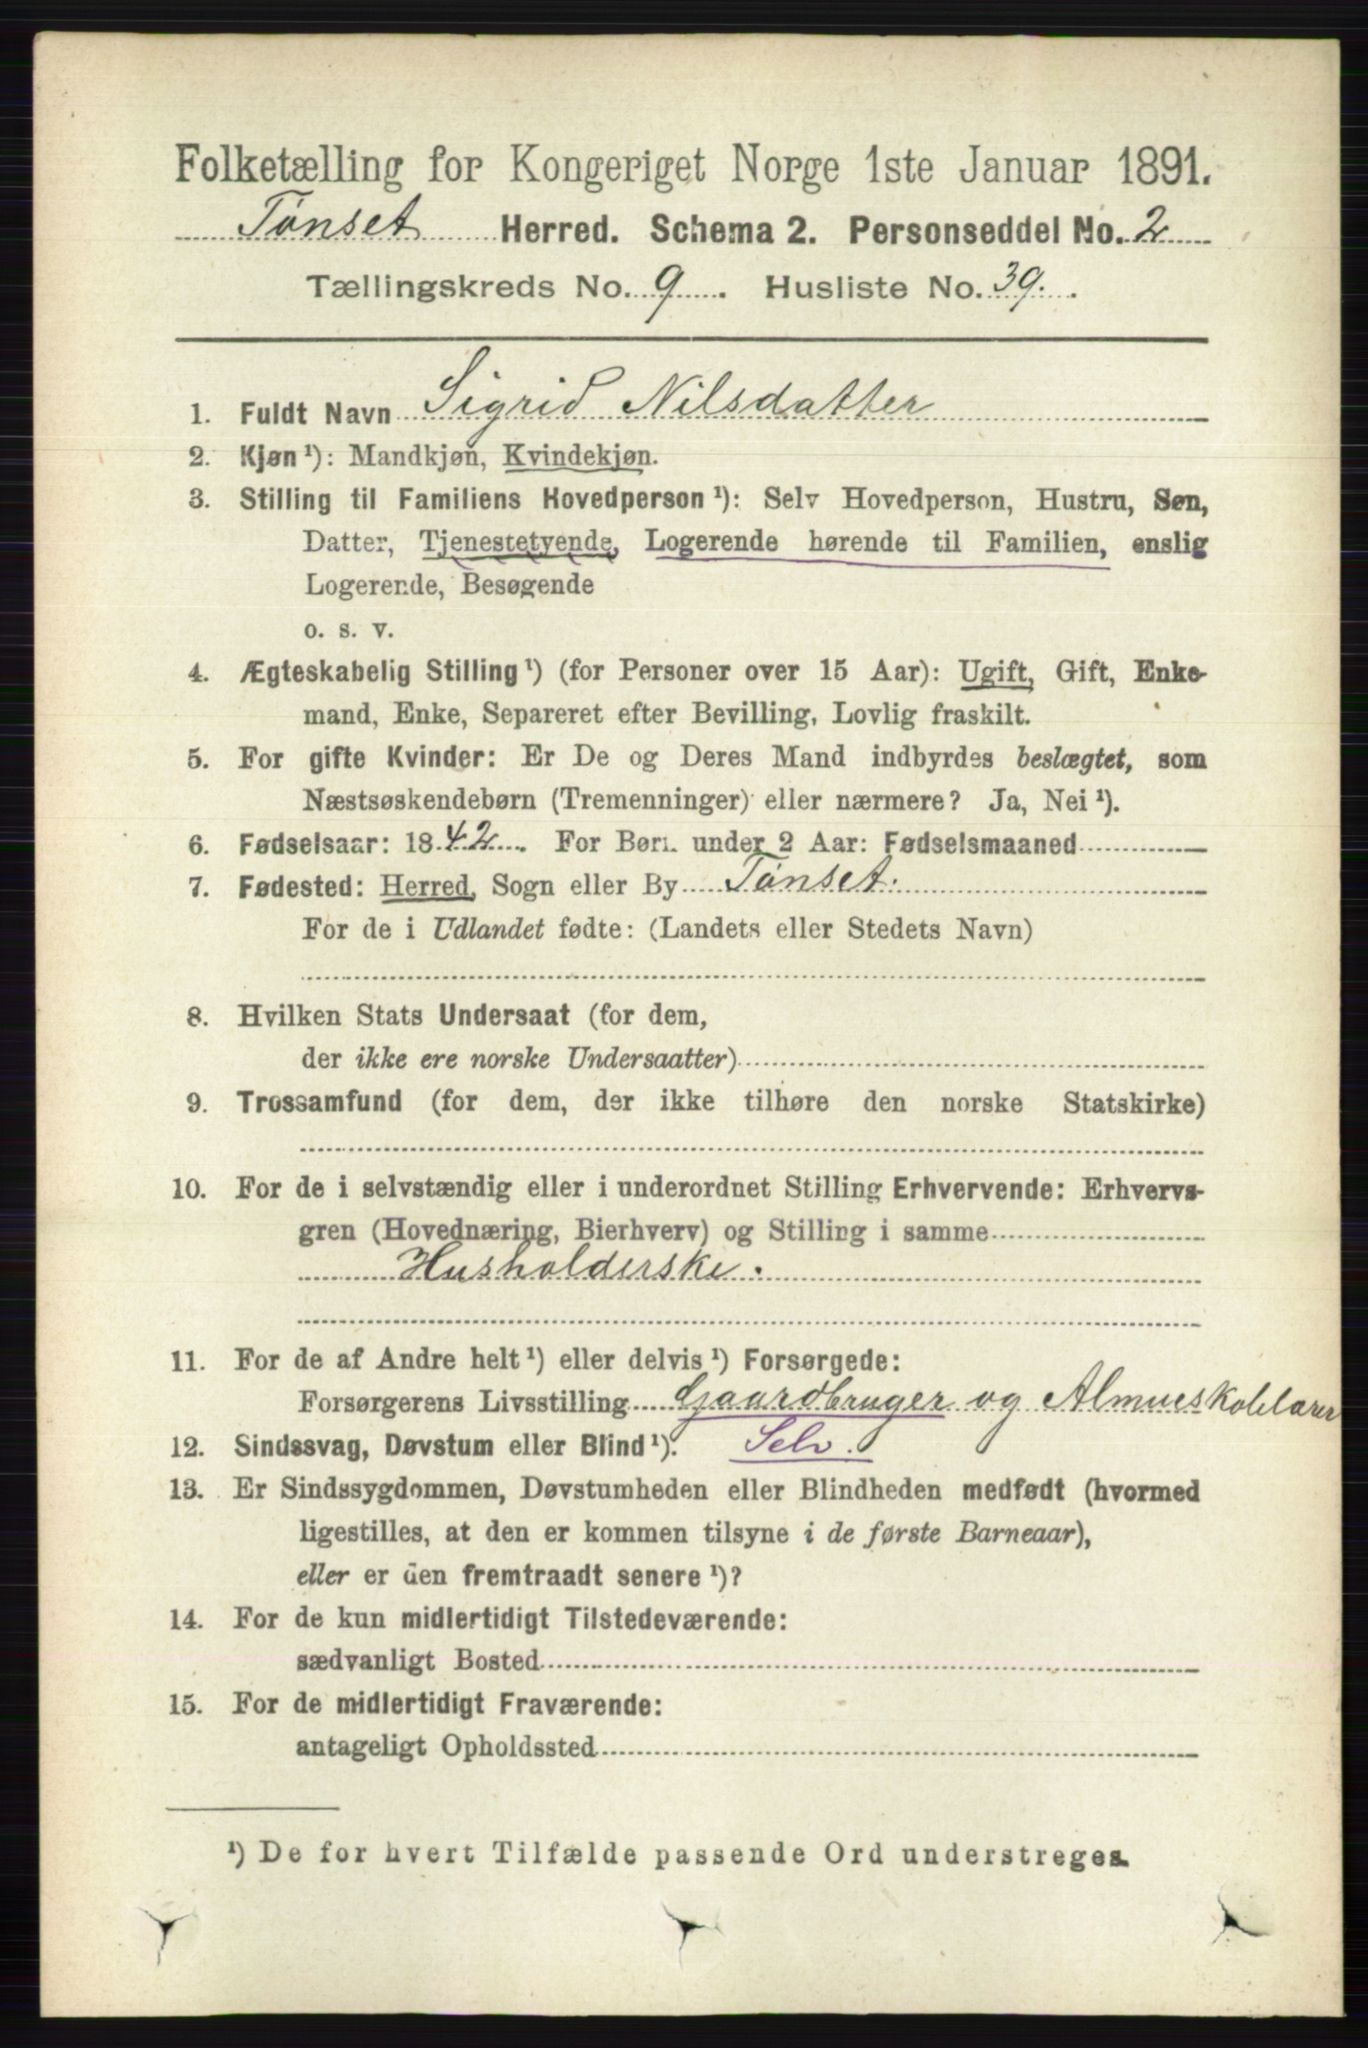 Folketælling for Kongeriget Norge 1ste Januar 1891.
Tønset Herred. Schema 2. Personseddel No. 2
Tællingskreds No. 9. Husliste No. 39.
1. Fuldt Navn Sigrid Nilsdatter
2. Kjøn ¹): Mandkjøn, Kvindekjøn.
3. Stilling til Familiens Hovedperson ¹): Selv Hovedperson, Hustru, Søn,
Datter, Tjenestetyende, Logerende hørende til Familien, enslig
Logerende, Besøgende
o. s. v.
4. Ægteskabelig Stilling ¹) (for Personer over 15 Aar): Ugift, Gift, Enke-
mand, Enke, Separeret efter Bevilling, Lovlig fraskilt.
5. For gifte Kvinder: Er De og Deres Mand indbyrdes beslægtet, som
Næstsøskendebørn (Tremenninger) eller nærmere? Ja, Nei ¹).
6. Fødselsaar: 1842. For Børn under 2 Aar: Fødselsmaaned
7. Fødested: Herred, Sogn eller By Tønset.
For de i Udlandet fødte: (Landets eller Stedets Navn)
8. Hvilken Stats Undersaat (for dem,
der ikke ere norske Undersaatter)
9. Trossamfund (for dem, der ikke tilhøre den norske Statskirke)
10. For de i selvstændig eller i underordnet Stilling Erhvervende: Erhvervs-
gren (Hovednæring, Bierhverv) og Stilling i samme
Husholderske.
11. For de af Andre helt ¹) eller delvis ¹) Forsørgede:
Forsørgerens Livsstilling Gaardbruger og Almueskolelærer
12. Sindssvag, Døvstum eller Blind ¹). Selv.
13. Er Sindssygdommen, Døvstumheden eller Blindheden medfødt (hvormed
ligestilles, at den er kommen tilsyne i de første Barneaar),
eller er den fremtraadt senere ¹)?
14. For de kun midlertidigt Tilstedeværende:
sædvanligt Bosted
15. For de midlertidigt Fraværende:
antageligt Opholdssted
¹) De for hvert Tilfælde passende Ord understreges.